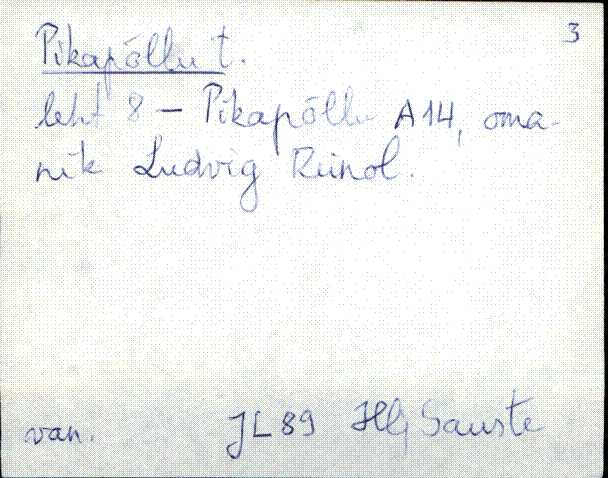 3
Pikapõllu t.
leht 8 – Pikapõllu A14, oma-
nik Ludvig Reinol.
van. JL 89 HlJ Sauste